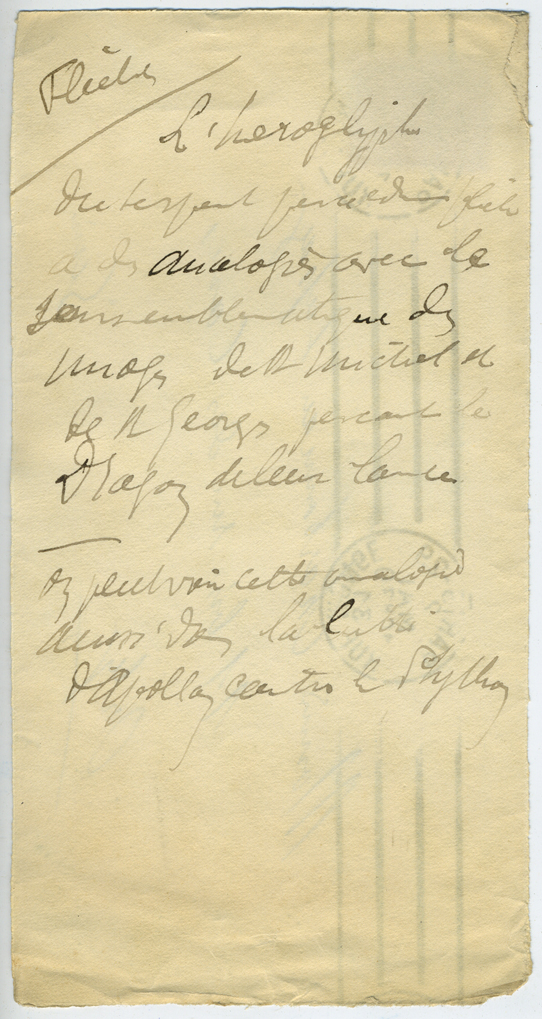 Flèche
L'heroglyphe
du serpent percé d'une flèche
a des analogies avec le
sens emblematique des
images de St Michel et
de St Georges percant le
Dragon de leur lance
on peut voir cette analogie
aussi dans la lutte
d'Apollon contre le Python